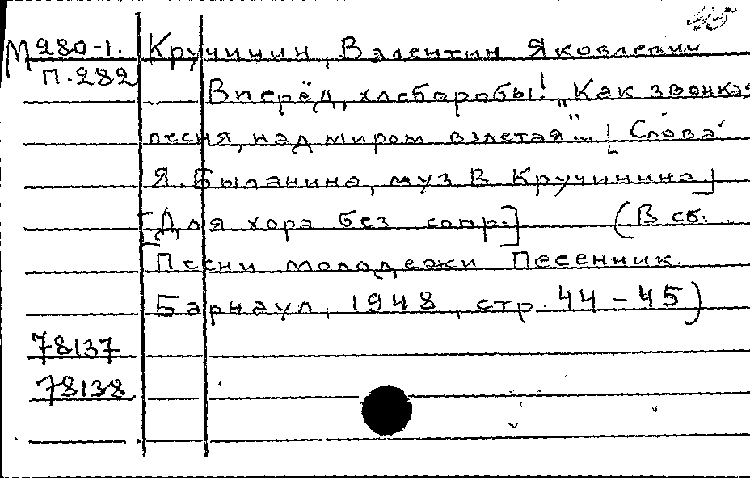 М280-1. Кручинин, Валентин Яковлевич
П.282
Вперёд, хлеборобы! „Как звонкая
песня, над миром взлетая"... [Слова
Я. Быланина, муз В Кручинина]
[Для хора без сопр.] (В сб.
Песни молодежи Песенник.
Барнаул, 1948, стр. 44-45)
78137
78138